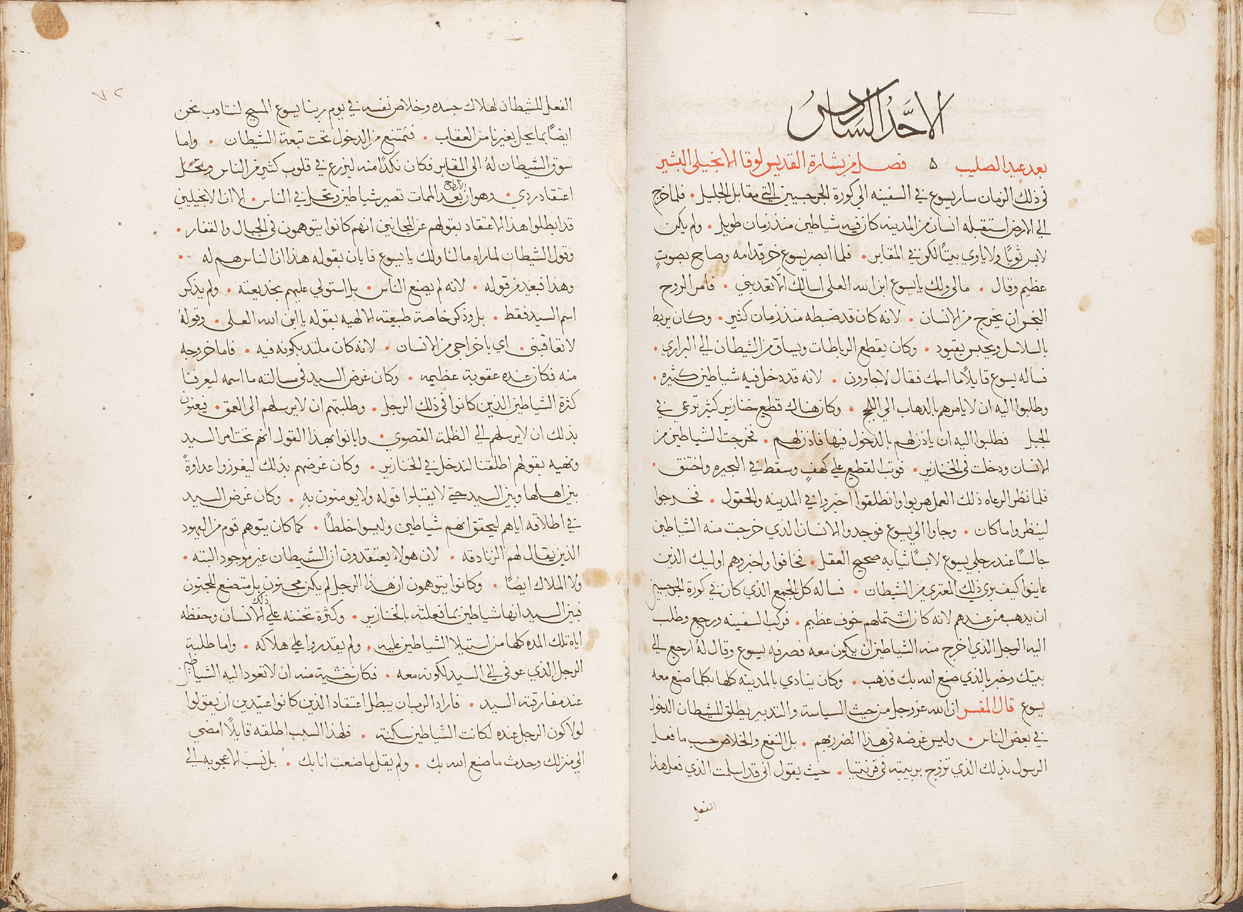 الاحَّد السادس
بعد عيد الصليب ٥ فصل من بشارة القديس لوقا الانجيلي البشير
في ذلك الزمان سار يسوع في السفينه الي كورة الجرجسيين التي مقابل الجليل • فلما خرج
الي الارض استقبله انسان من المدينه كان فيه شياطين منذ زمان طويل • ولم يكن
لابس ثوبًا ولا ياوي بيتًا لكن في المقابر • فلما ابصر يسوع خر قدامه وصاح بصوتٍ
عظيم وقال • مالي ولك يا يسوع ابن الله العلي اسالك الا تعذبني • فامر الروح
النجس ان يخرج من الانسان • لانه كان قد ضبطه منذ زمان كثير • وكان يربط
بالسلاسل ويحبس بقيود • وكان يقطع الرباطات ويساق من الشيطان الي البراري •
فساله يسوع قايلًا ما اسمك فقال لاجاون • لانه قد دخل فيه شياطين كثيره •
وطلبوا اليه ان لا يامرهم بالذهاب الي اللجج • وكان هناك قطيع خنازير كثير ترعي في
الجبل فطلبوا اليه ان ياذن لهم بالدخول فيها فاذن لهم • فخرجت الشياطين من
الانسان ودخلت في الخنازير • فوثب القطيع علي كهفٍ وسقط في البحيره واختنق •
فلما نظر الرعاه ذلك العمل هربوا وانطلقوا اخبروا في المدينه والحقول • فخرجوا
لينظروا ما كان • وجاوا الي يسوع فوجدوا الانسان الذي خرجت منه الشياطين
جالسًا عند رجلي يسوع لابسًا ثيابه صحيح العقل • فخافوا واخبرهم اوليك الذين
عاينوا كيف بري ذلك المعتري من الشيطان • فساله كل الجمع الذي كان في كورة الجرجسيين
ان يذهب من عندهم لانه كان اشتملهم خوف عظيم • فركب السفينه ورجع وطلب
اليه الرجل الذي اخرج منه الشياطين ان يكون معه فصرفه يسوع وقال له ارجع الي
بيتك وخبر بالذي صنع الله بك فذهب • وكان ينادي بالمدينه كلها بكلما صنع معه
يسوع قال المفسر ان الله عز وجل من حيث السياسة والتدبير يطلق للشيطان الدخول
في بعض الناس • وليس غرضه في هذا الضرر بهم • بل النفع والخلاص حسب ما فعل
الرسول بذلك الذي تزوج بربيبته في قرنتيا • حيث يقول اني قد اسلمت الذي فعل هذا
الفعل
٧٢
الفعل للشيطان لهلاك جسده وخلاص نفسه في يوم ربنا يسوع المسيح لنتادب نحن
ايضًا بما يحل بغيرنا من العقاب • فنمتنع من الدخول تحت تبعة الشيطان • واما
سوق الشيطان له الي المقابر فكان نكدًا منه ليزرع في قلوب كثير من الناس
اعتقاد ردي • وهو ان بعد الممات تصير شياطين وتحل في الناس • الا ان الانجيلي
قد ابطلوا هذا الاعتقاد بقولهم عن المجانين انهم كانوا يتوهمون في الجبال والقفار •
وقول الشيطان لما راه ما لنا ولك يا يسوع فابان بقوله هذا ان الناس هم له •
وهذا فبعيد من قوله • لانه لم يصنع الناس • بل استولي عليهم بخديعته • ولم يذكر
اسم السيد فقط • بل وذكر خاصة طبيعته الالهيه بقوله يا ابن الله العلي • وقوله
لا تعاقبني • اي باخراجي من الانسان • لانه كان ملتذ بكونه فيه • فاما خروجه
منه فكان عنده عقوبة عظيمه • وكان غرض السيد في مسالته ما اسمه ليعرفنا
كثرة الشياطين الذين كانوا في ذلك الرجل • وطلبتهم ان لا يرسلهم الي العمق • فيعنون
بذلك ان لا يرسلهم الي الظلمة القصوي • وابانوا بهذا القول انهم تحت امر السيد
ونهيه بقولهم اطلقنا لندخل في الخنازير • وكان غرضهم بذلك ليغرزوا عداوةً
بين اهلها وبين السيد حتي لا يقبلوا قوله ولا يومنون به • وكان غرض السيد
في اطلاقه اياهم ليتحقق انهم شياطين وليس اخلطًا • كما كان يتوهم قوم من اليهود
الذين يقال لهم الزنادقه • لان هولاء يعتقدون ان الشيطان غير موجود البته •
ولا الملاك ايضًا • وكانوا يتوهمون ان هذا الرجل لم يكن مجنون بل متصنع للجنون
فبين السيد انها شياطين بما فعلته بالخنازير • وكثرة تحننه علي ذلك الانسان وحفظه
اياه تلك المده كلها من استيلا الشياطين عليه • ولم يقدروا علي هلاكه • واما طلبة
الرجل الذي عوفي الي السيد لكونه معه • فكان خشية منه ان لا تعود اليه الشياطين
عند مفارقته السيد • فاراد الرب ان يبطل اعتقاد الذين كانوا عتيدين ان يقولوا
لولا كون الرجل عنده لكانت الشياطين سكنته • فلهذا السبب اطلقه قايلًا امضي
الي منزلك وحدث ما صنع الله بك • ولم يقل ما صنعت انا بك • بل نسب الاعجوبه الي